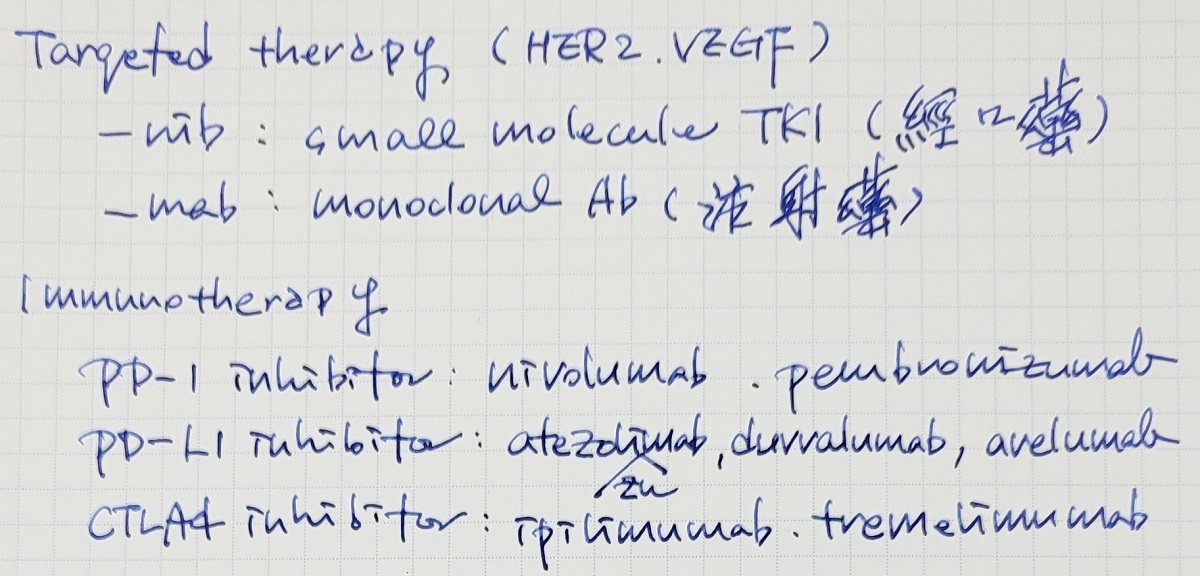 Targeted therapy (HER2.VEGF)
-nib : small molecule TKI (經口藥)
-mab : monoclonal Ab (注射藥)
Immunotherapy
PD-1 inhibitor : nivolumab . pembronizumab
PD-L1 inhibitor : atezolizumab, durvalumab, avelumab
CTLA4 inhibitor : ipilimumab . tremelimumab